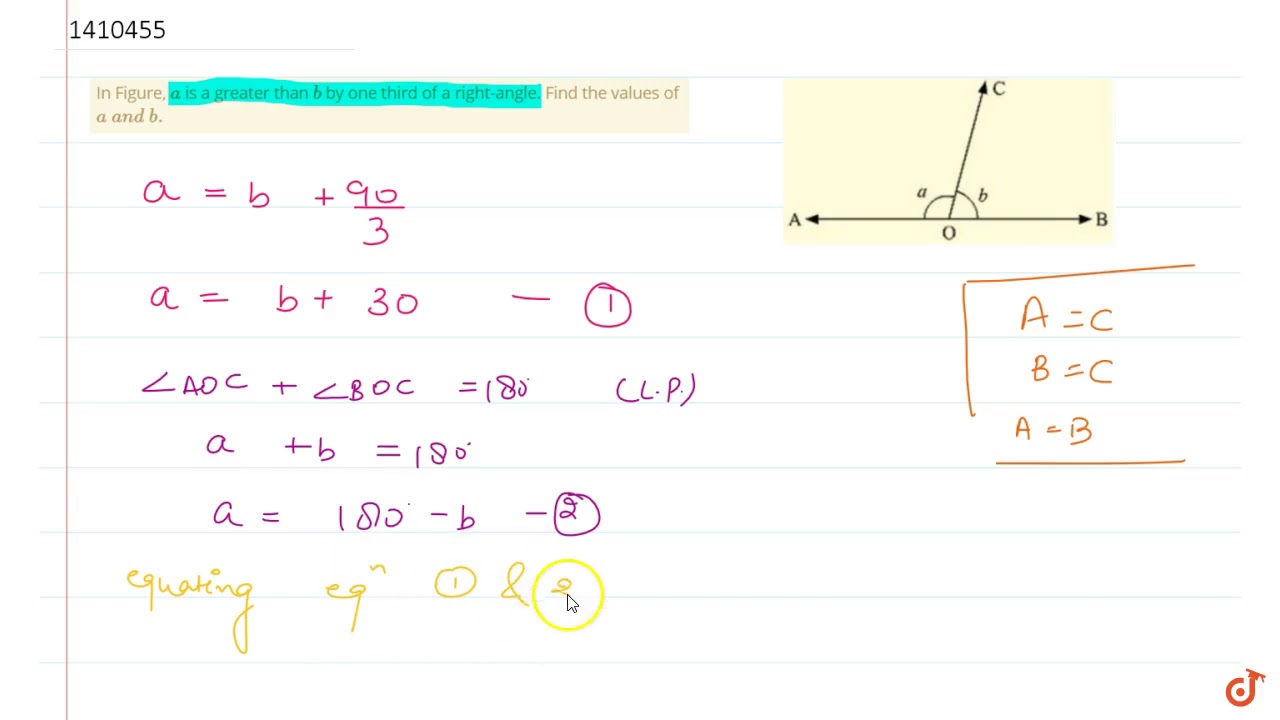 1410455
In Figure, a is a greater than b by one third of a right-angle. Find the values of
a and b.
C
a b
A B
O
a = b + 90/3
a = b + 30 — ①
∠AOC + ∠BOC = 180° (L.P.)
a + b = 180°
a = 180° - b - ②
equating eqⁿ ① & 2
A = C
B = C
A = B